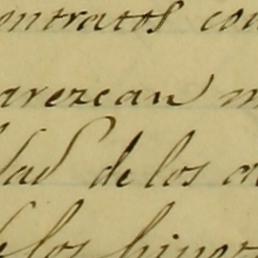 ontratos con
arezcan m
dad de los a
de los